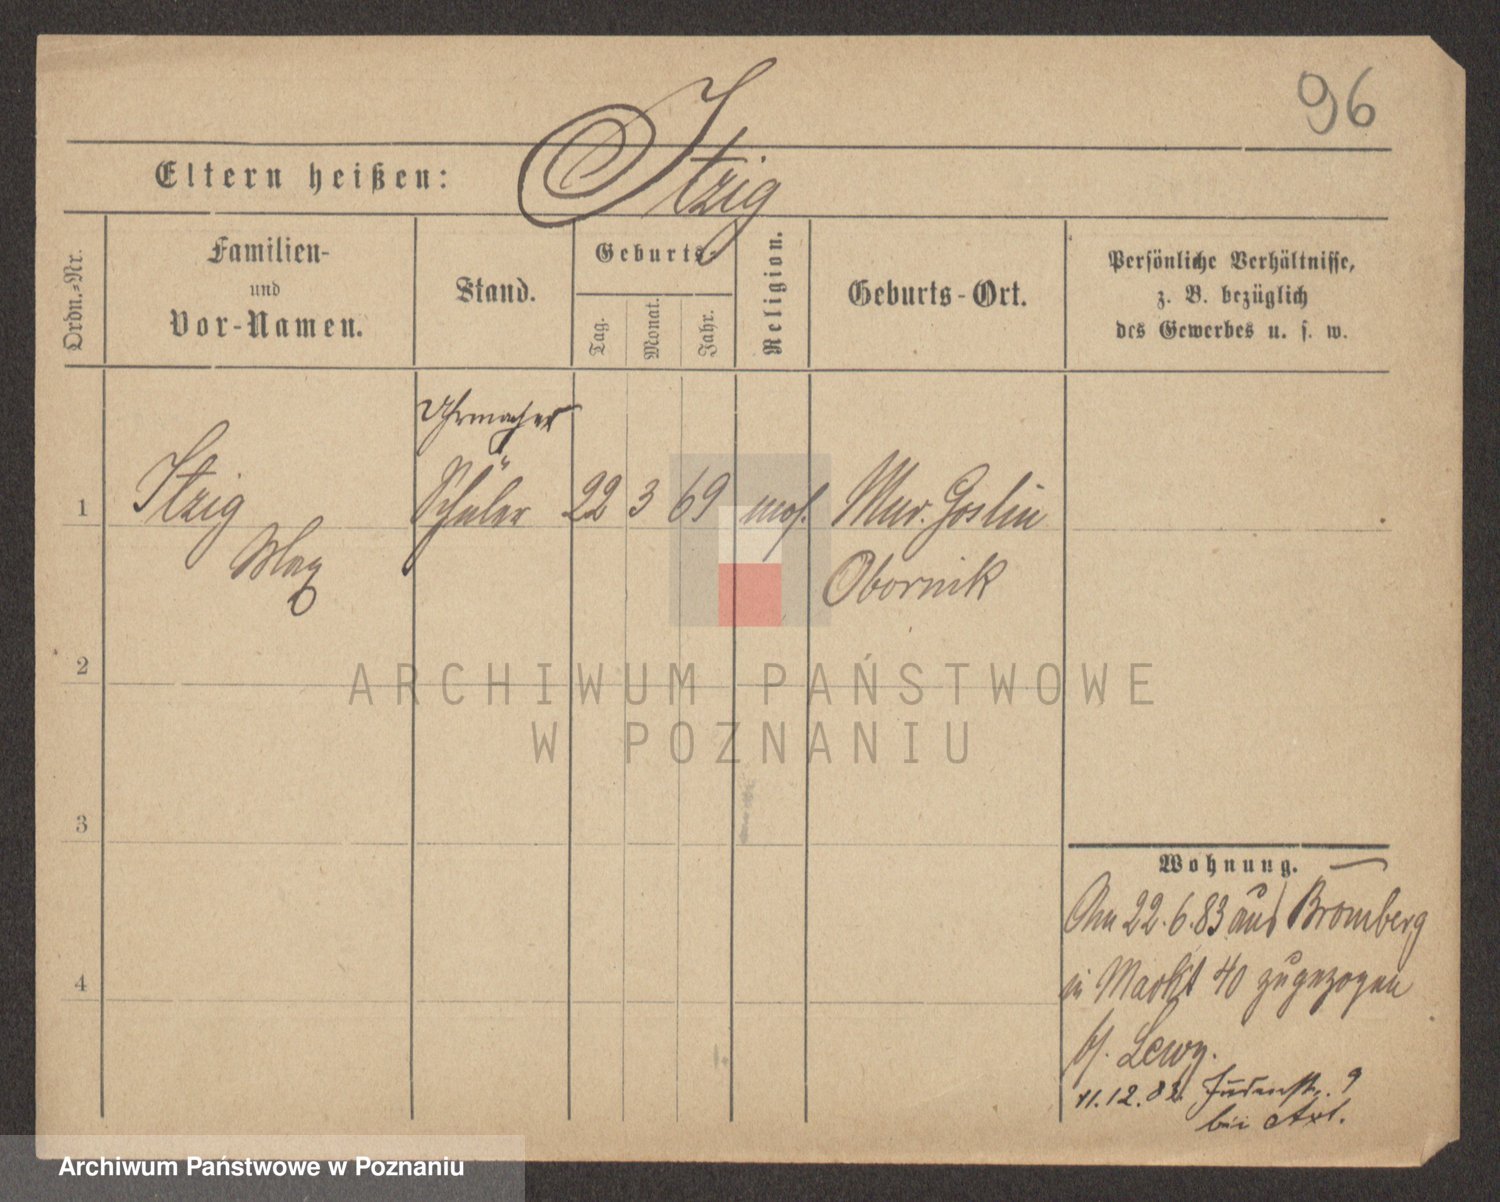 96
Eltern heißen: Itzig
Ordn.-Nr.
Familien-
und
Vor-Namen.
Stand.
Geburts-
Tag.
Monat.
Jahr.
Religion.
Geburts-Ort.
Persönliche Verhältnisse,
z. B. bezüglich
des Gewerbes u. s. w.
Uhrmacher
1 Itzig Schüler 22 3 69 mos. Mur. Goslin
Max Obornik
2
ARCHIWUM PAŃSTWOWE
W POZNANIU
3
Wohnung.
Am 22.6.83 aus Bromberg
in Markt 40 zugezogen
4
b/. Lewy.
11.12.82 Judenstr. 9
bei
Archiwum Państwowe w Poznaniu